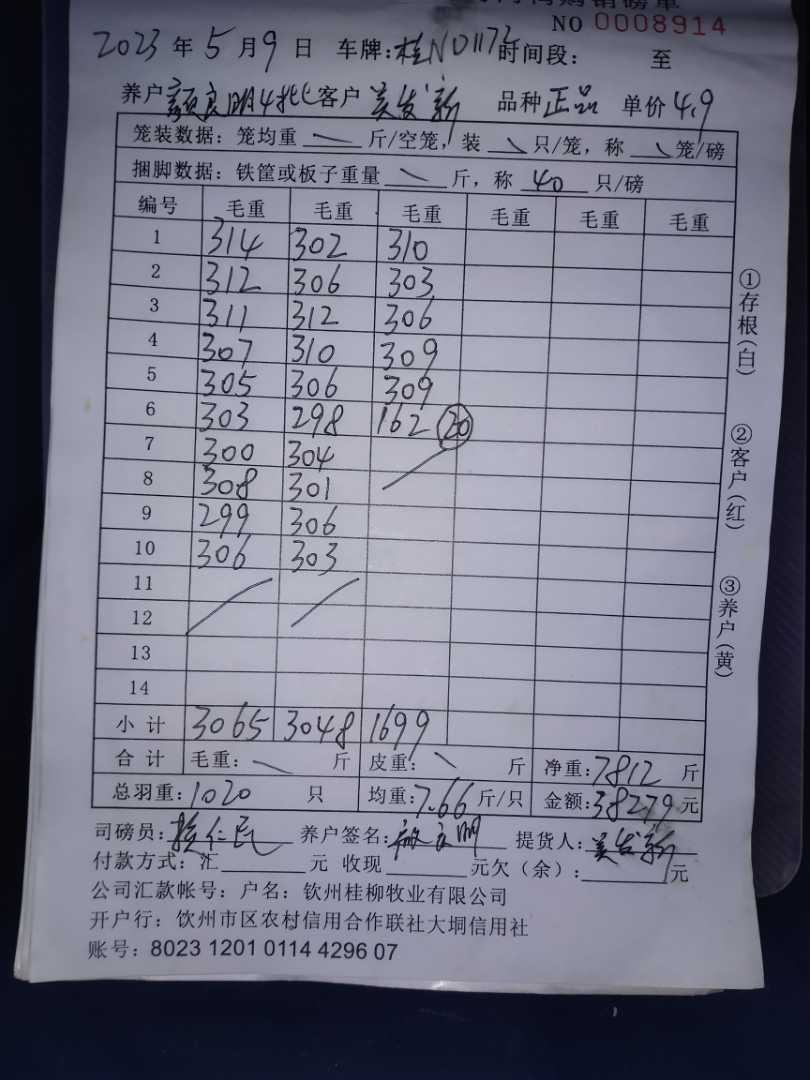 购销磅单
NO 0008914
2023 年 5 月 9 日 车牌:桂N01172 时间段: 至
养户 颜良明4批 客户 美发新 品种 正品 单价 4.9
笼装数据: 笼均重 斤/空笼, 装 只/笼, 称 笼/磅
捆脚数据: 铁筐或板子重量 斤, 称 40 只/磅
编号 毛重 毛重 毛重 毛重 毛重 毛重
1 314 302 310
2 312 306 303
3 311 312 306
4 307 310 309
5 305 306 309
6 303 298 162 20
7 300 304
8 308 301
9 299 306
10 306 303
11
12
13
14
小计 3065 3048 1699
合计 毛重: 斤 皮重: 斤 净重:7812 斤
总羽重:1020 只 均重:7.66 斤/只 金额:38279 元
司磅员: 仁民 养户签名: 良明 提货人:美发新
付款方式: 汇 元 收现 元欠(余): 元
公司汇款帐号: 户名: 钦州桂柳牧业有限公司
开户行: 饮州市区农村信用合作联社大垌信用社
账号: 8023 1201 0114 4296 07
①存根(白)
②客户(红)
③养户(黄)